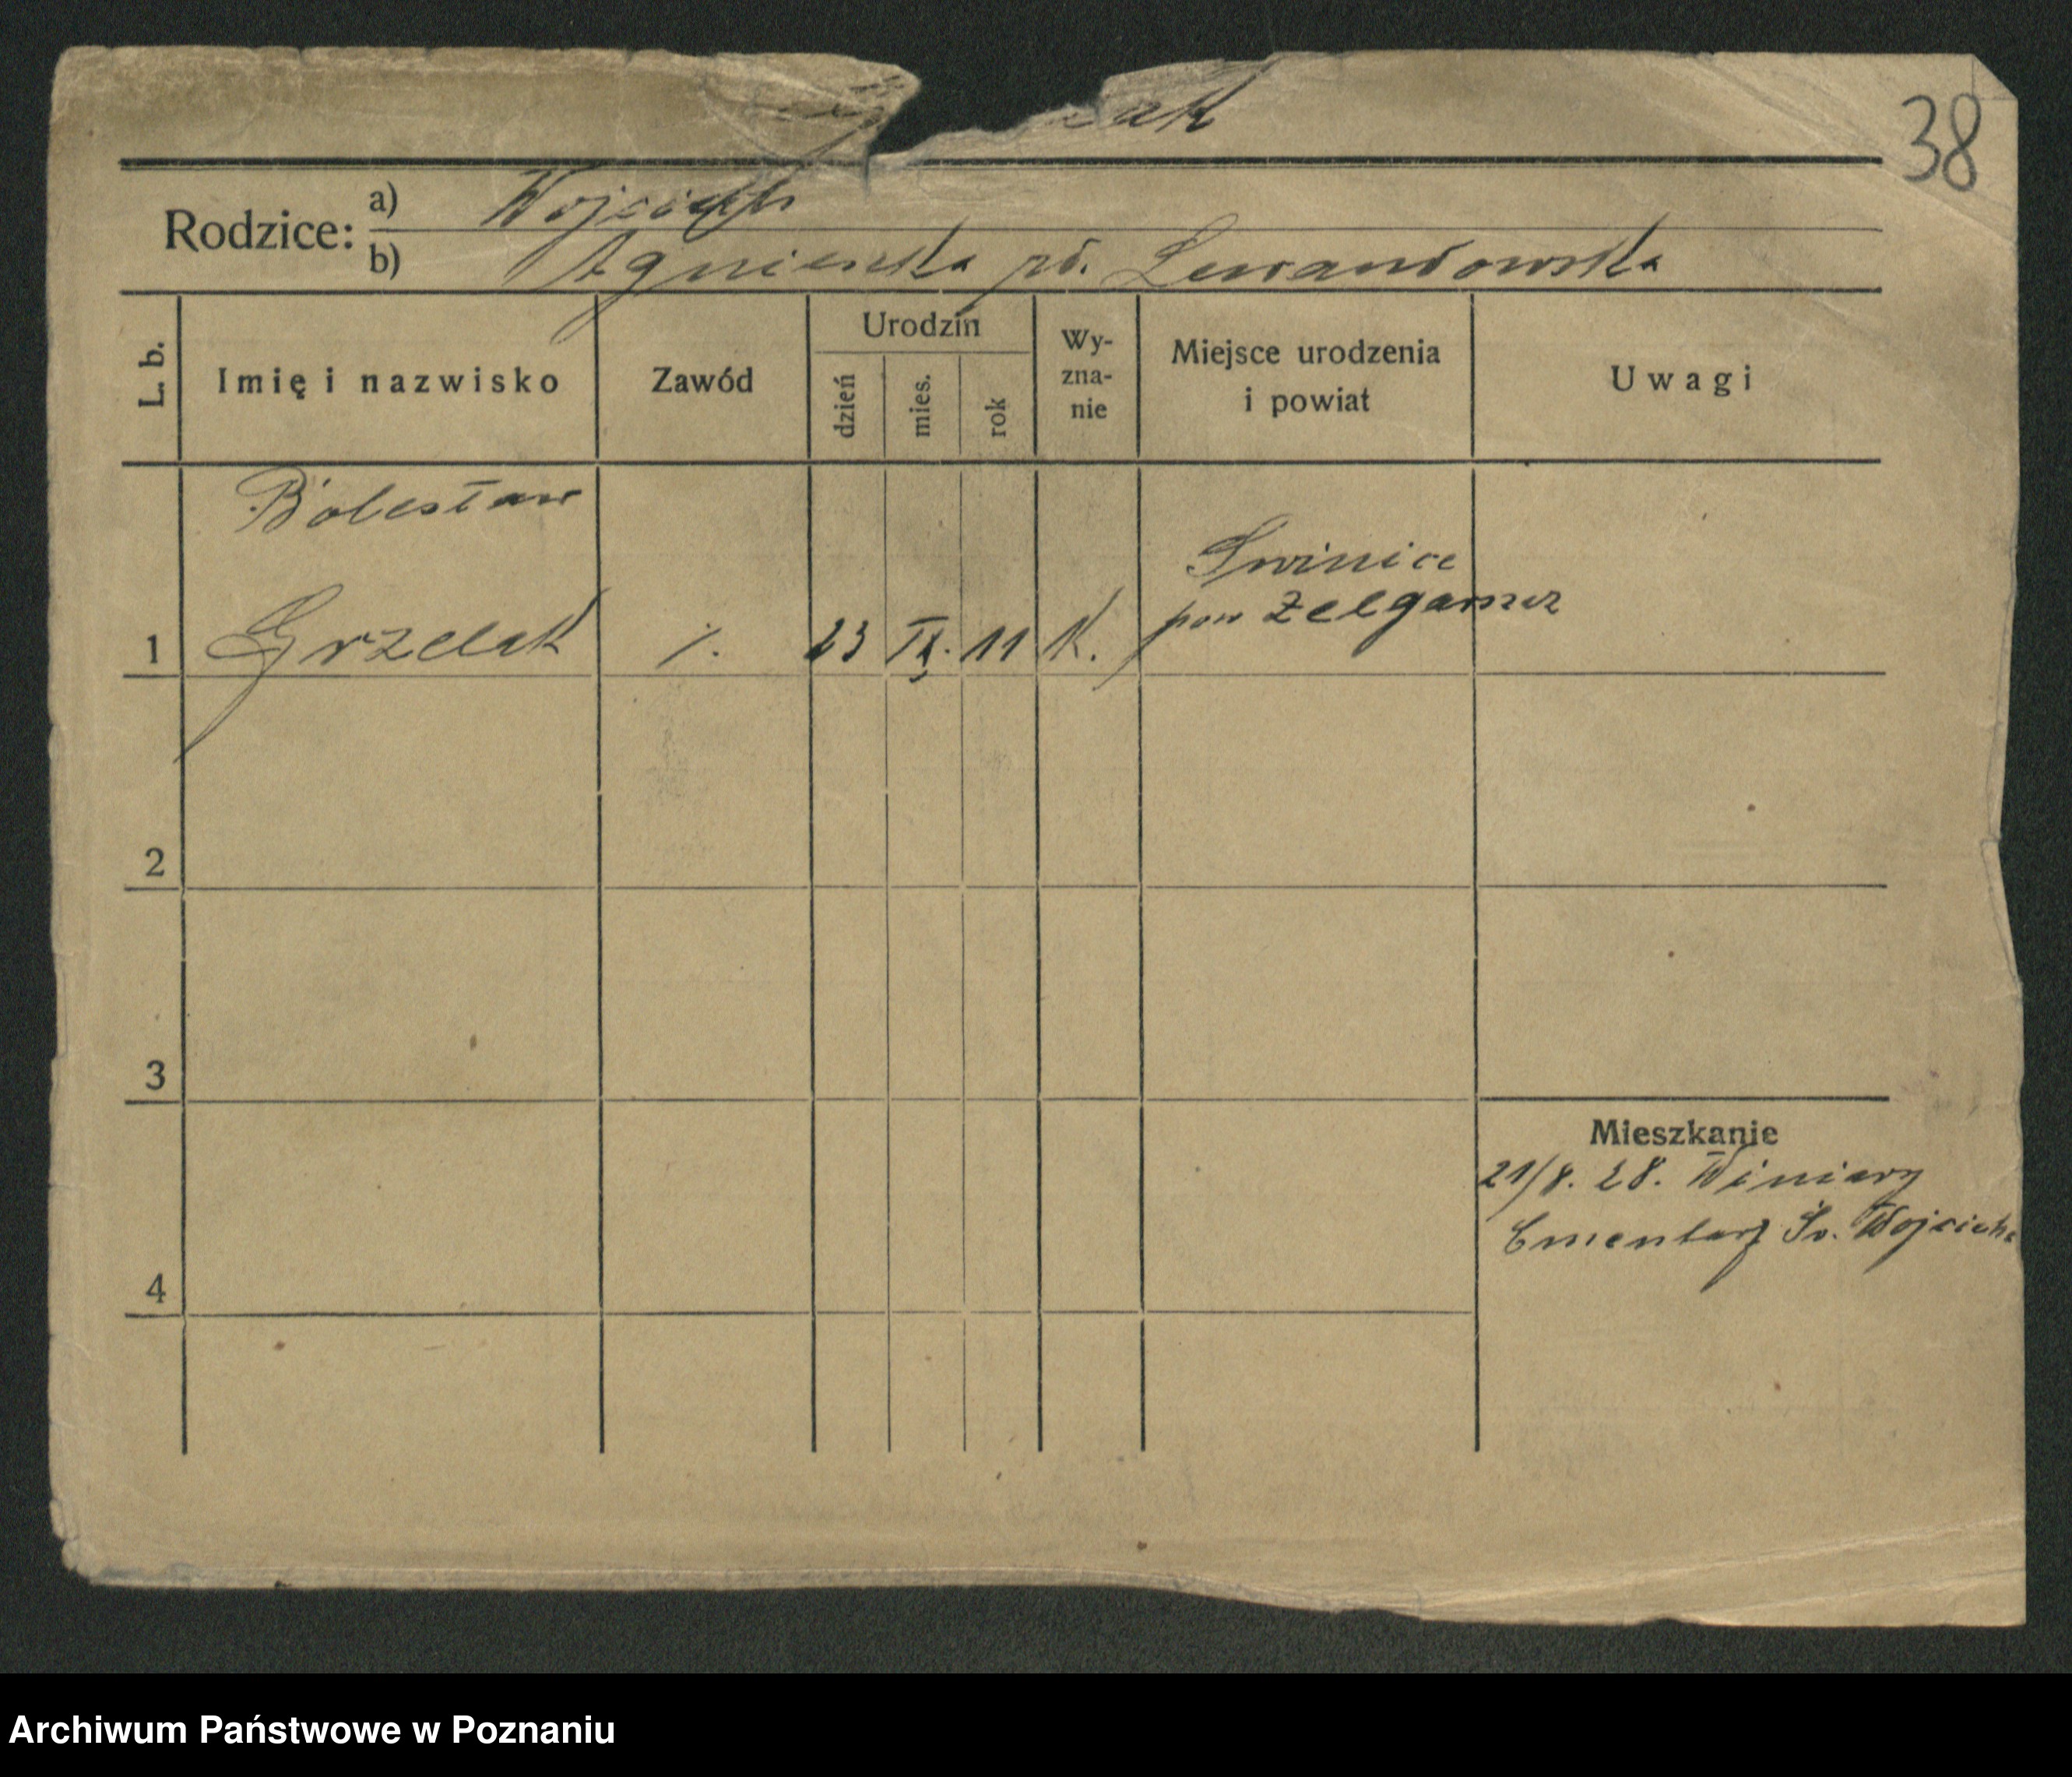 zak
38
Rodzice: a) Wojciech
b) Agnieszka rd. Lewandowska
L. b. Imię i nazwisko Zawód Urodzin dzień mies. rok Wy-zna-nie Miejsce urodzenia i powiat Uwagi
Bolesław
Swinice
pow
1 Grzelak /. 23 IX. 11 K.
2
3
Mieszkanie
21/8. 28. Winiary
Cmentarz Św. Wojciecha
4
Archiwum Państwowe w Poznaniu